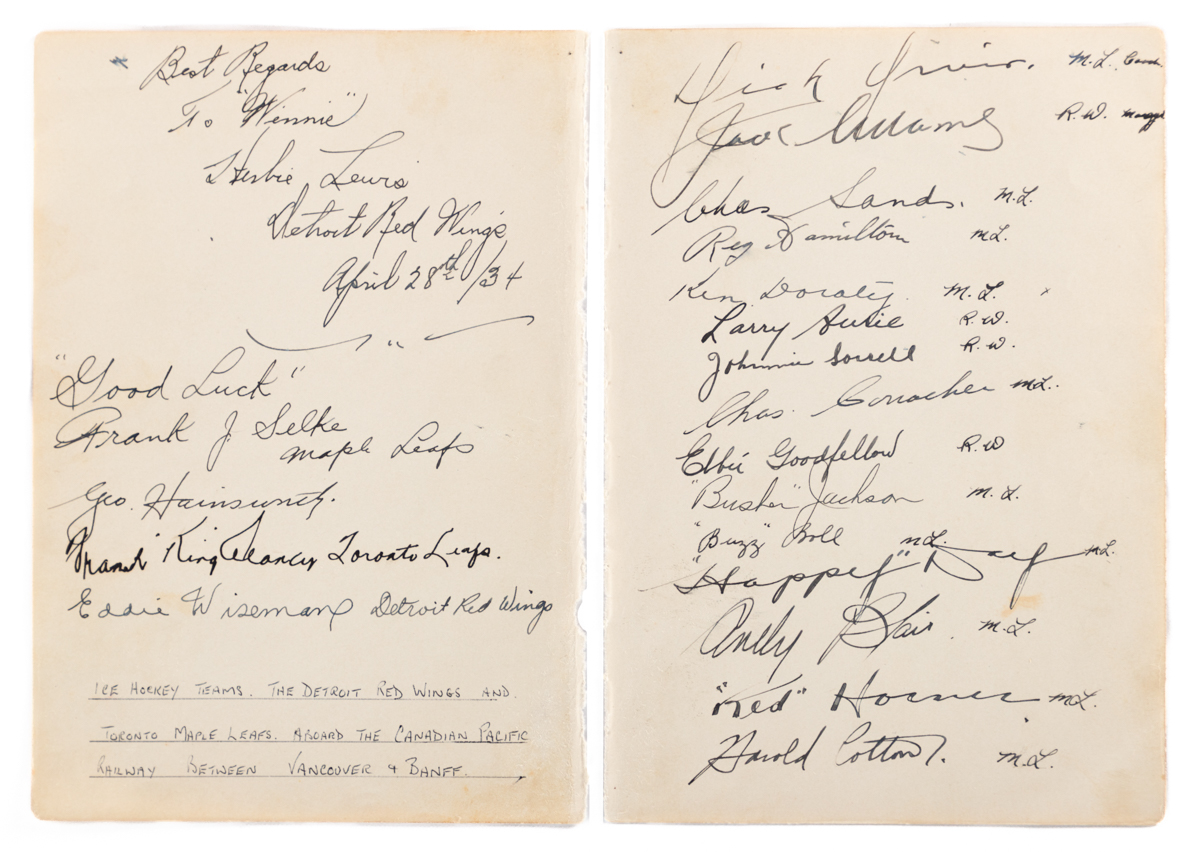 Best Regards
To "Winnie"
Herbie Lewis
Detroit Red Wings
April 28th /34
"Good Luck"
Frank J Selke
Maple Leafs
Geo. Hainsworth.
"Frank" King Clancy Toronto Leafs.
Eddie Wiseman Detroit Red Wings
ICE HOCKEY TEAMS. THE DETROIT RED WINGS AND
TORONTO MAPLE LEAFS. ABOARD THE CANADIAN PACIFIC
RAILWAY BETWEEN VANCOUVER & BANFF.
Dick Irvin. M.L. Coach
Jack Adams R.W.
Chas Sands. M.L.
Reg Hamilton M.L.
Ken Doraty. M.L.
Larry Aurie R.W.
Johnnie Sorrell R.W.
Chas. Conacher M.L.
Ebbie Goodfellow R.W
"Busher" Jackson M.L.
"Buzz" Boll M.L.
"Happy" Day M.L.
Andy Blair. M.L.
"Red" Horner M.L.
Harold Cotton. M.L.